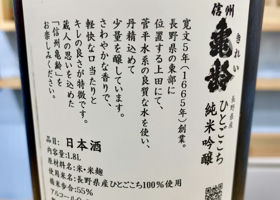 信州
亀齢
きれい
長野県産
ひとごこち
純米吟醸
寛文5年(1665年)創業。
長野県の東部に
位置する上田にて、
菅平水系の良質な水を使い、
丹精込めて
少量を醸しています。
さわやかな香りで、
軽快な口当たりと
キレの良さが特徴です。
蔵人の思いを込めた
「信州亀齢」を
お楽しみください。
日本酒
内容量:1.8L
原材料名:米・米麹
原料米:長野県産ひとごこち100%使用
精米歩合:55%